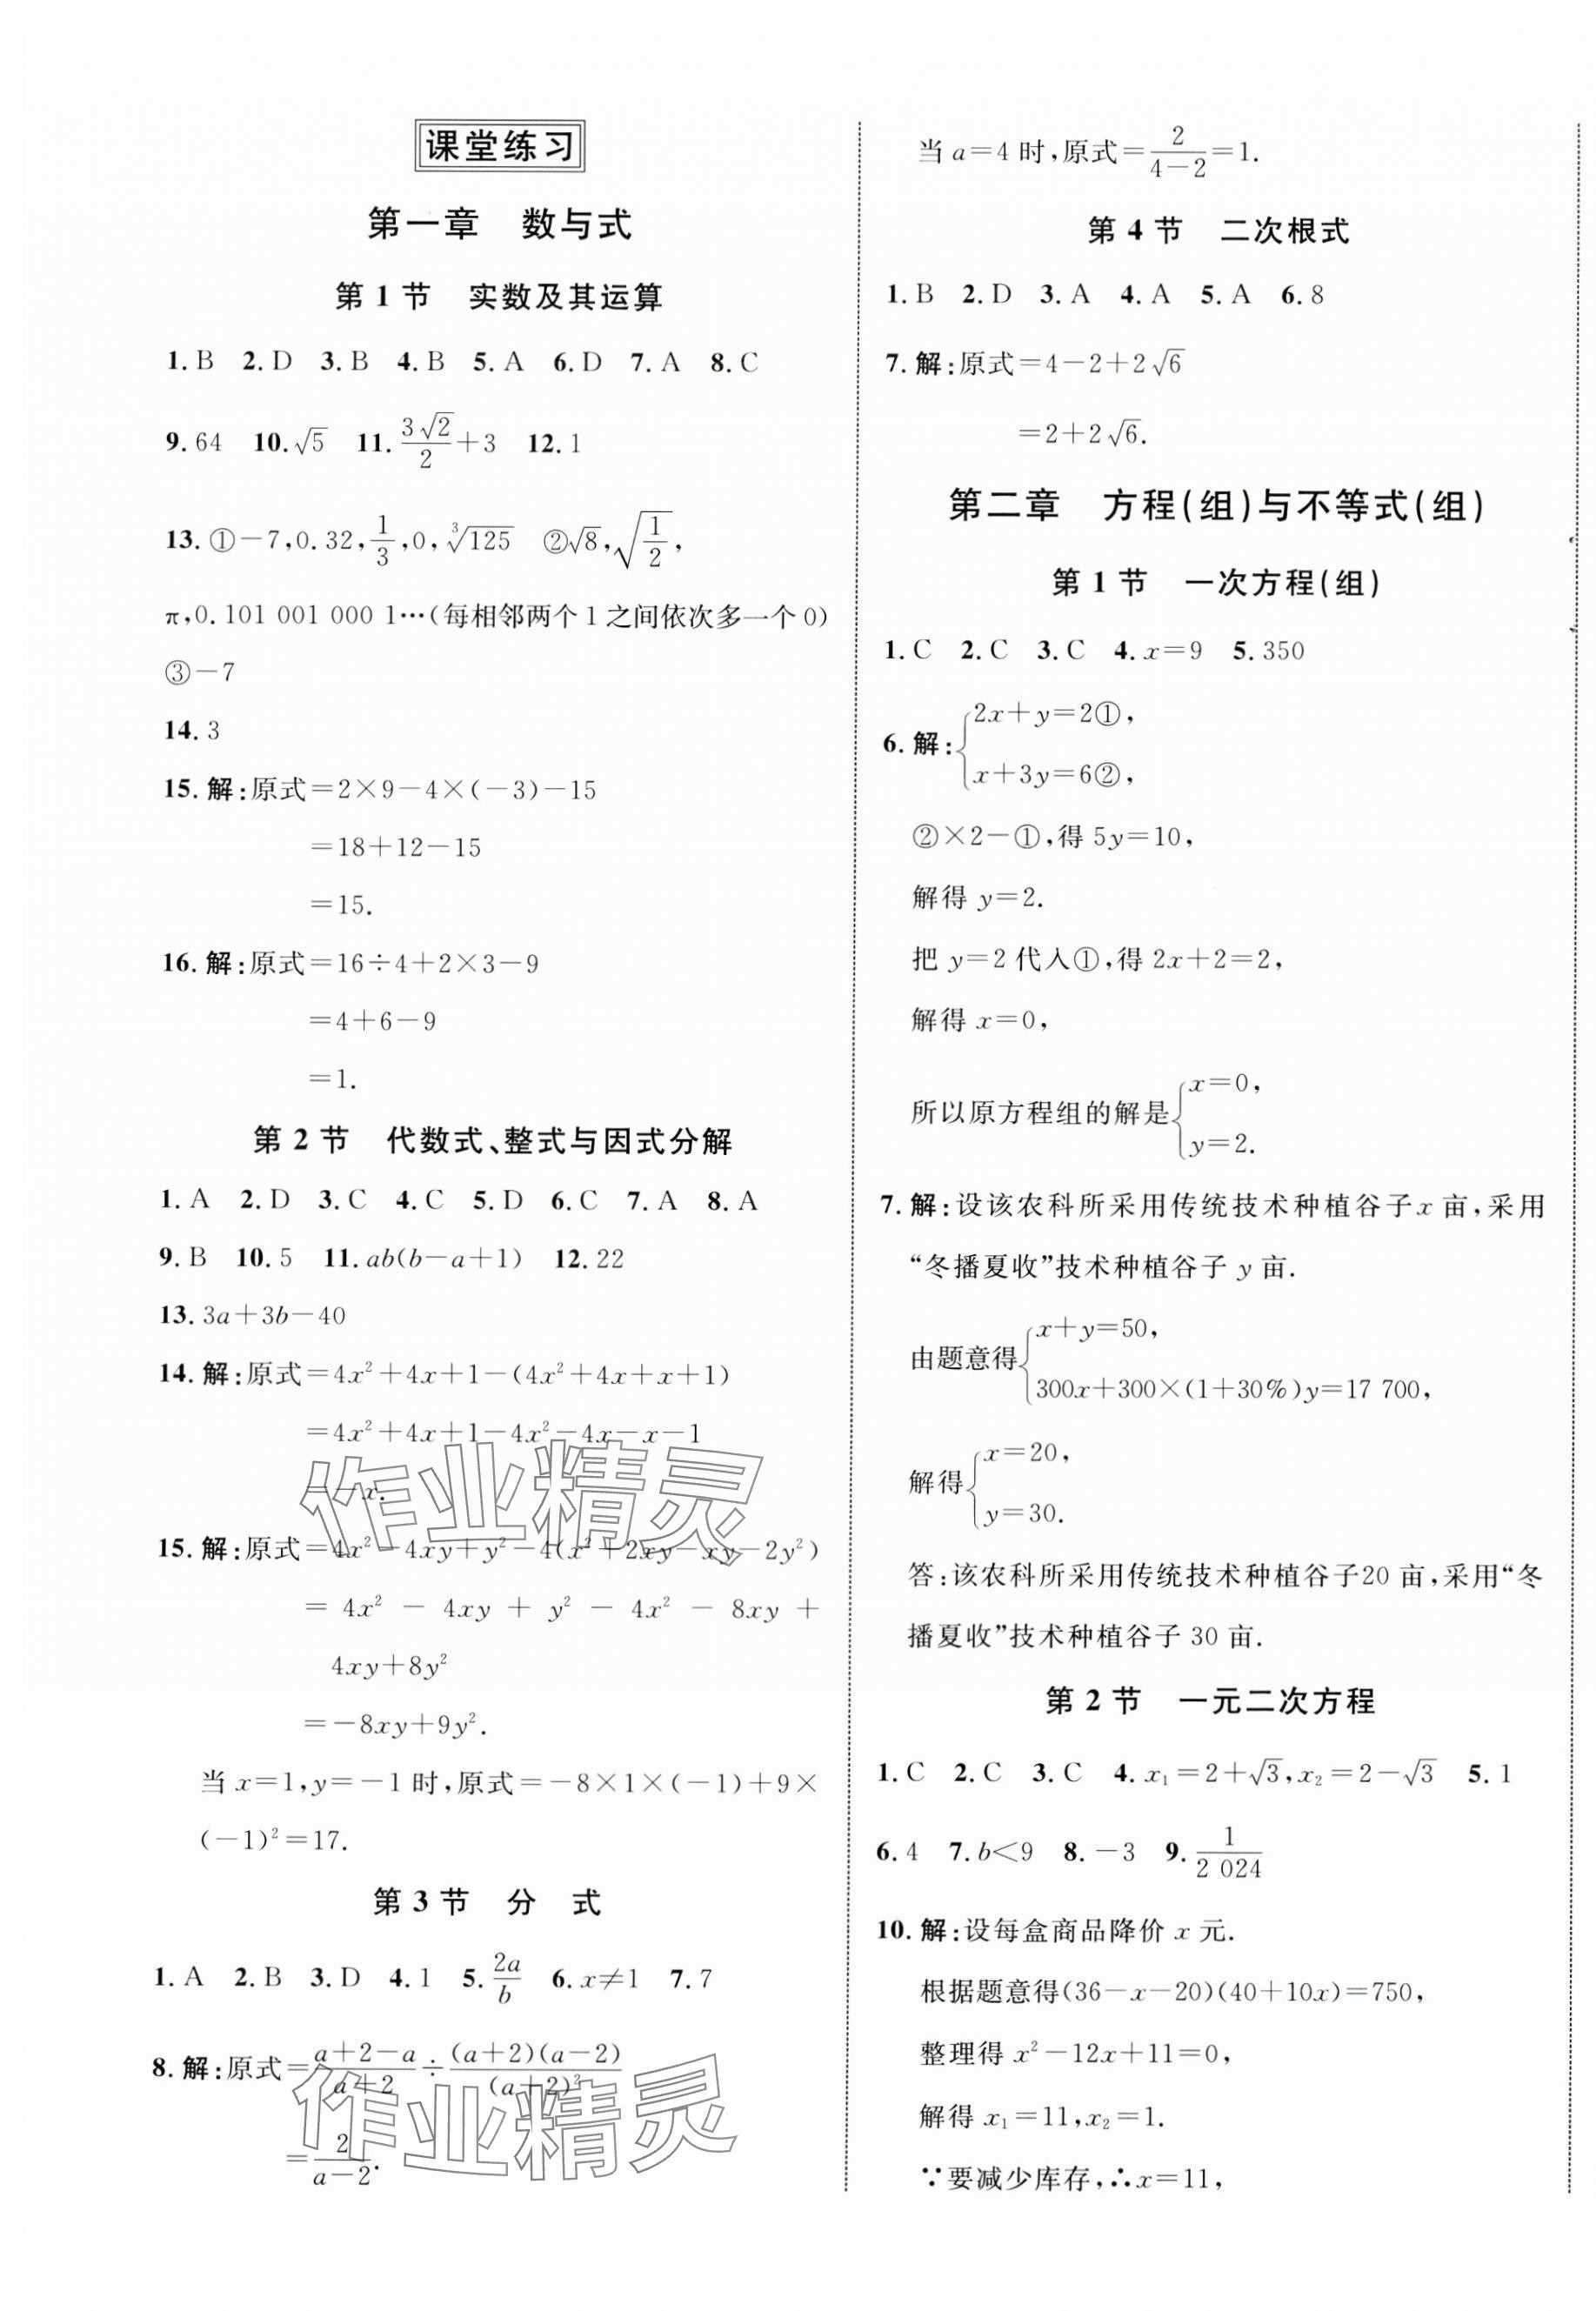 课堂练习
第一章　数与式
第 1 节　实数及其运算
1. B　2. D　3. B　4. B　5. A　6. D　7. A　8. C
9. 64　10. √5　11. 3√2/2+3　12. 1
13. ①-7,0.32,1/3,0,∛125　②√8,√(1/2),
π,0.101 001 000 1…(每相邻两个 1 之间依次多一个 0)
③-7
14. 3
15. 解:原式=2×9-4×(-3)-15
=18+12-15
=15.
16. 解:原式=16÷4+2×3-9
=4+6-9
=1.
第 2 节　代数式、整式与因式分解
1. A　2. D　3. C　4. C　5. D　6. C　7. A　8. A
9. B　10. 5　11. ab(b-a+1)　12. 22
13. 3a+3b-40
14. 解:原式=4x²+4x+1-(4x²+4x+x+1)
=4x²+4x+1-4x²-4x-x-1
=-x.
15. 解:原式=4x²-4xy+y²-4(x²+2xy-xy-2y²)
= 4x² - 4xy + y² - 4x² - 8xy +
4xy+8y²
=-8xy+9y².
当 x=1,y=-1 时,原式=-8×1×(-1)+9×
(-1)²=17.
第 3 节　分　式
1. A　2. B　3. D　4. 1　5. 2a/b　6. x≠1　7. 7
8. 解:原式=(a+2-a)/(a+2)÷(a+2)(a-2)/(a+2)²
=2/(a-2).
作业精灵
作业精灵
当 a=4 时,原式=2/(4-2)=1.
第 4 节　二次根式
1. B　2. D　3. A　4. A　5. A　6. 8
7. 解:原式=4-2+2√6
=2+2√6.
第二章　方程(组)与不等式(组)
第 1 节　一次方程(组)
1. C　2. C　3. C　4. x=9　5. 350
6. 解:{2x+y=2①,
x+3y=6②,
②×2-①,得 5y=10,
解得 y=2.
把 y=2 代入①,得 2x+2=2,
解得 x=0,
所以原方程组的解是{x=0,
y=2.
7. 解:设该农科所采用传统技术种植谷子 x 亩,采用
“冬播夏收”技术种植谷子 y 亩.
由题意得{x+y=50,
300x+300×(1+30%)y=17 700,
解得{x=20,
y=30.
答:该农科所采用传统技术种植谷子20 亩,采用“冬
播夏收”技术种植谷子 30 亩.
第 2 节　一元二次方程
1. C　2. C　3. C　4. x₁=2+√3,x₂=2-√3　5. 1
6. 4　7. b<9　8. -3　9. 1/2 024
10. 解:设每盒商品降价 x 元.
根据题意得(36-x-20)(40+10x)=750,
整理得 x²-12x+11=0,
解得 x₁=11,x₂=1.
∵要减少库存,∴x=11,